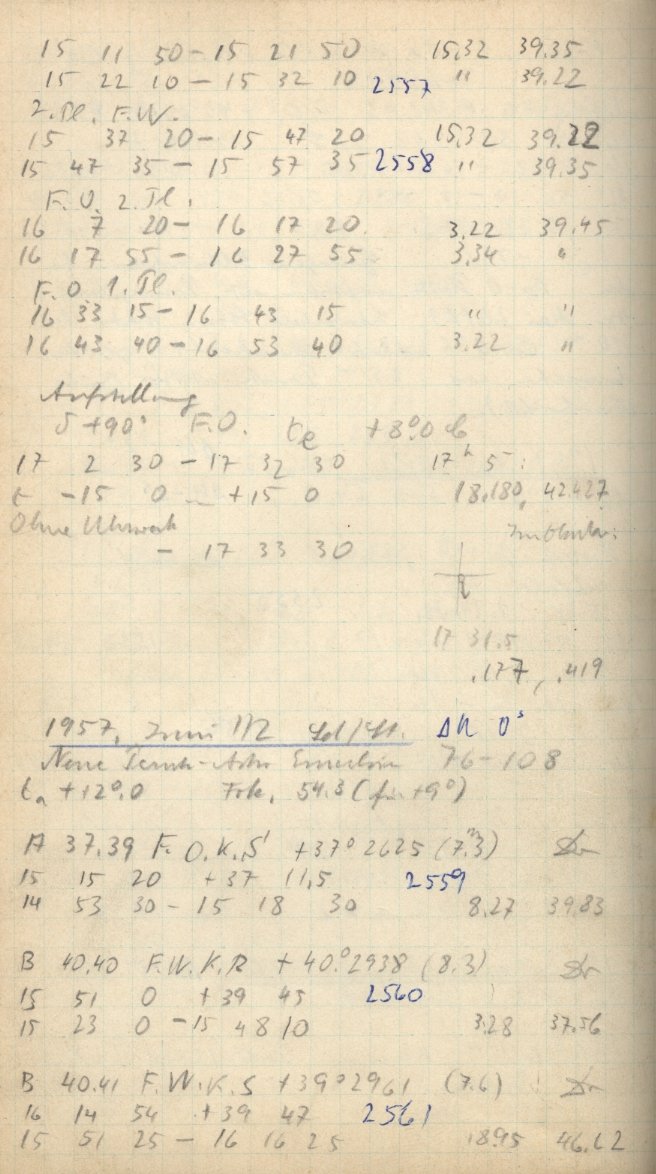 15 11 50 - 15 21 50 15,32 39.35
15 22 10 - 15 32 10 2557 " 39.22
2. Pl. F.W.
15 37 20 - 15 47 20 15,32 39.22
15 47 35 - 15 57 35 2558 " 39.35
F.O. 2. Pl.
16 7 20 - 16 17 20 3.22 39.45
16 17 55 - 16 27 55 3.34 "
F.O. 1. Pl.
16 33 15 - 16 43 15 " "
16 43 40 - 16 53 40 3.22 "
Aufstellung
δ +90° F.O. te +8°.0
17 2 30 - 17 32 30 17h 5
t -15 0 +15 0 18.180, 42.427
Ohne Uhrwerk
- 17 33 30
17 31.5
.177, .419
1957, Juni 1/2 ΔU 0s
Neue Emulsion 76-108
ta +12°.0 Fok. 54.3 (für +9°)
A 37.39 F.O.K.S +37° 2625 (7.3)
15 15 20 +37 11,5 2559
14 53 30 - 15 18 30 8.27 39.83
B 40.40 F.W.K.R +40.°2938 (8.3)
15 51 0 +39 45 2560
15 23 0 - 15 48 10 3.28 37.56
B 40.41 F.W.K.S +39°2961 (7.6)
16 14 54 +39 47 2561
15 51 25 - 16 16 25 1895 46.62